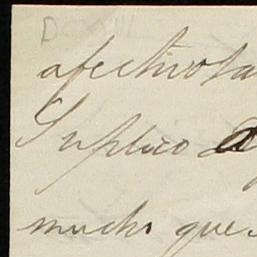 afectivo sa
Suplico a
mucho que